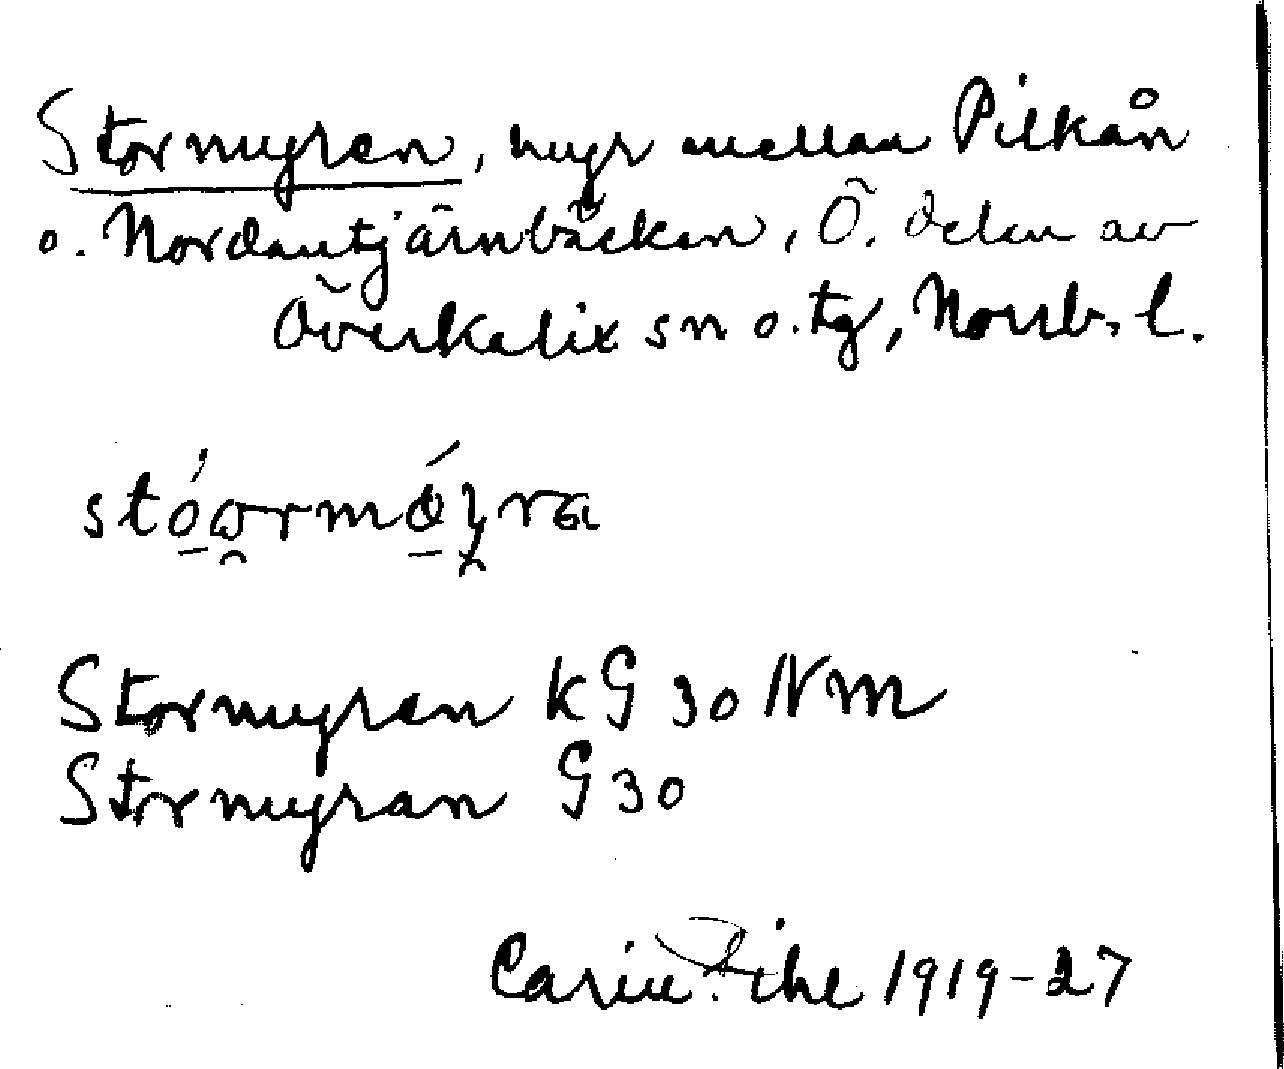 Stormyran, myr mellan Pilkån
o. Nordantjärnbäcken, Ö. delen av
Överkalix sn o. tg, Norrb. l.
Stormyran KG 30 NM
Stormyran G 30
Carin Pihl 1919-27